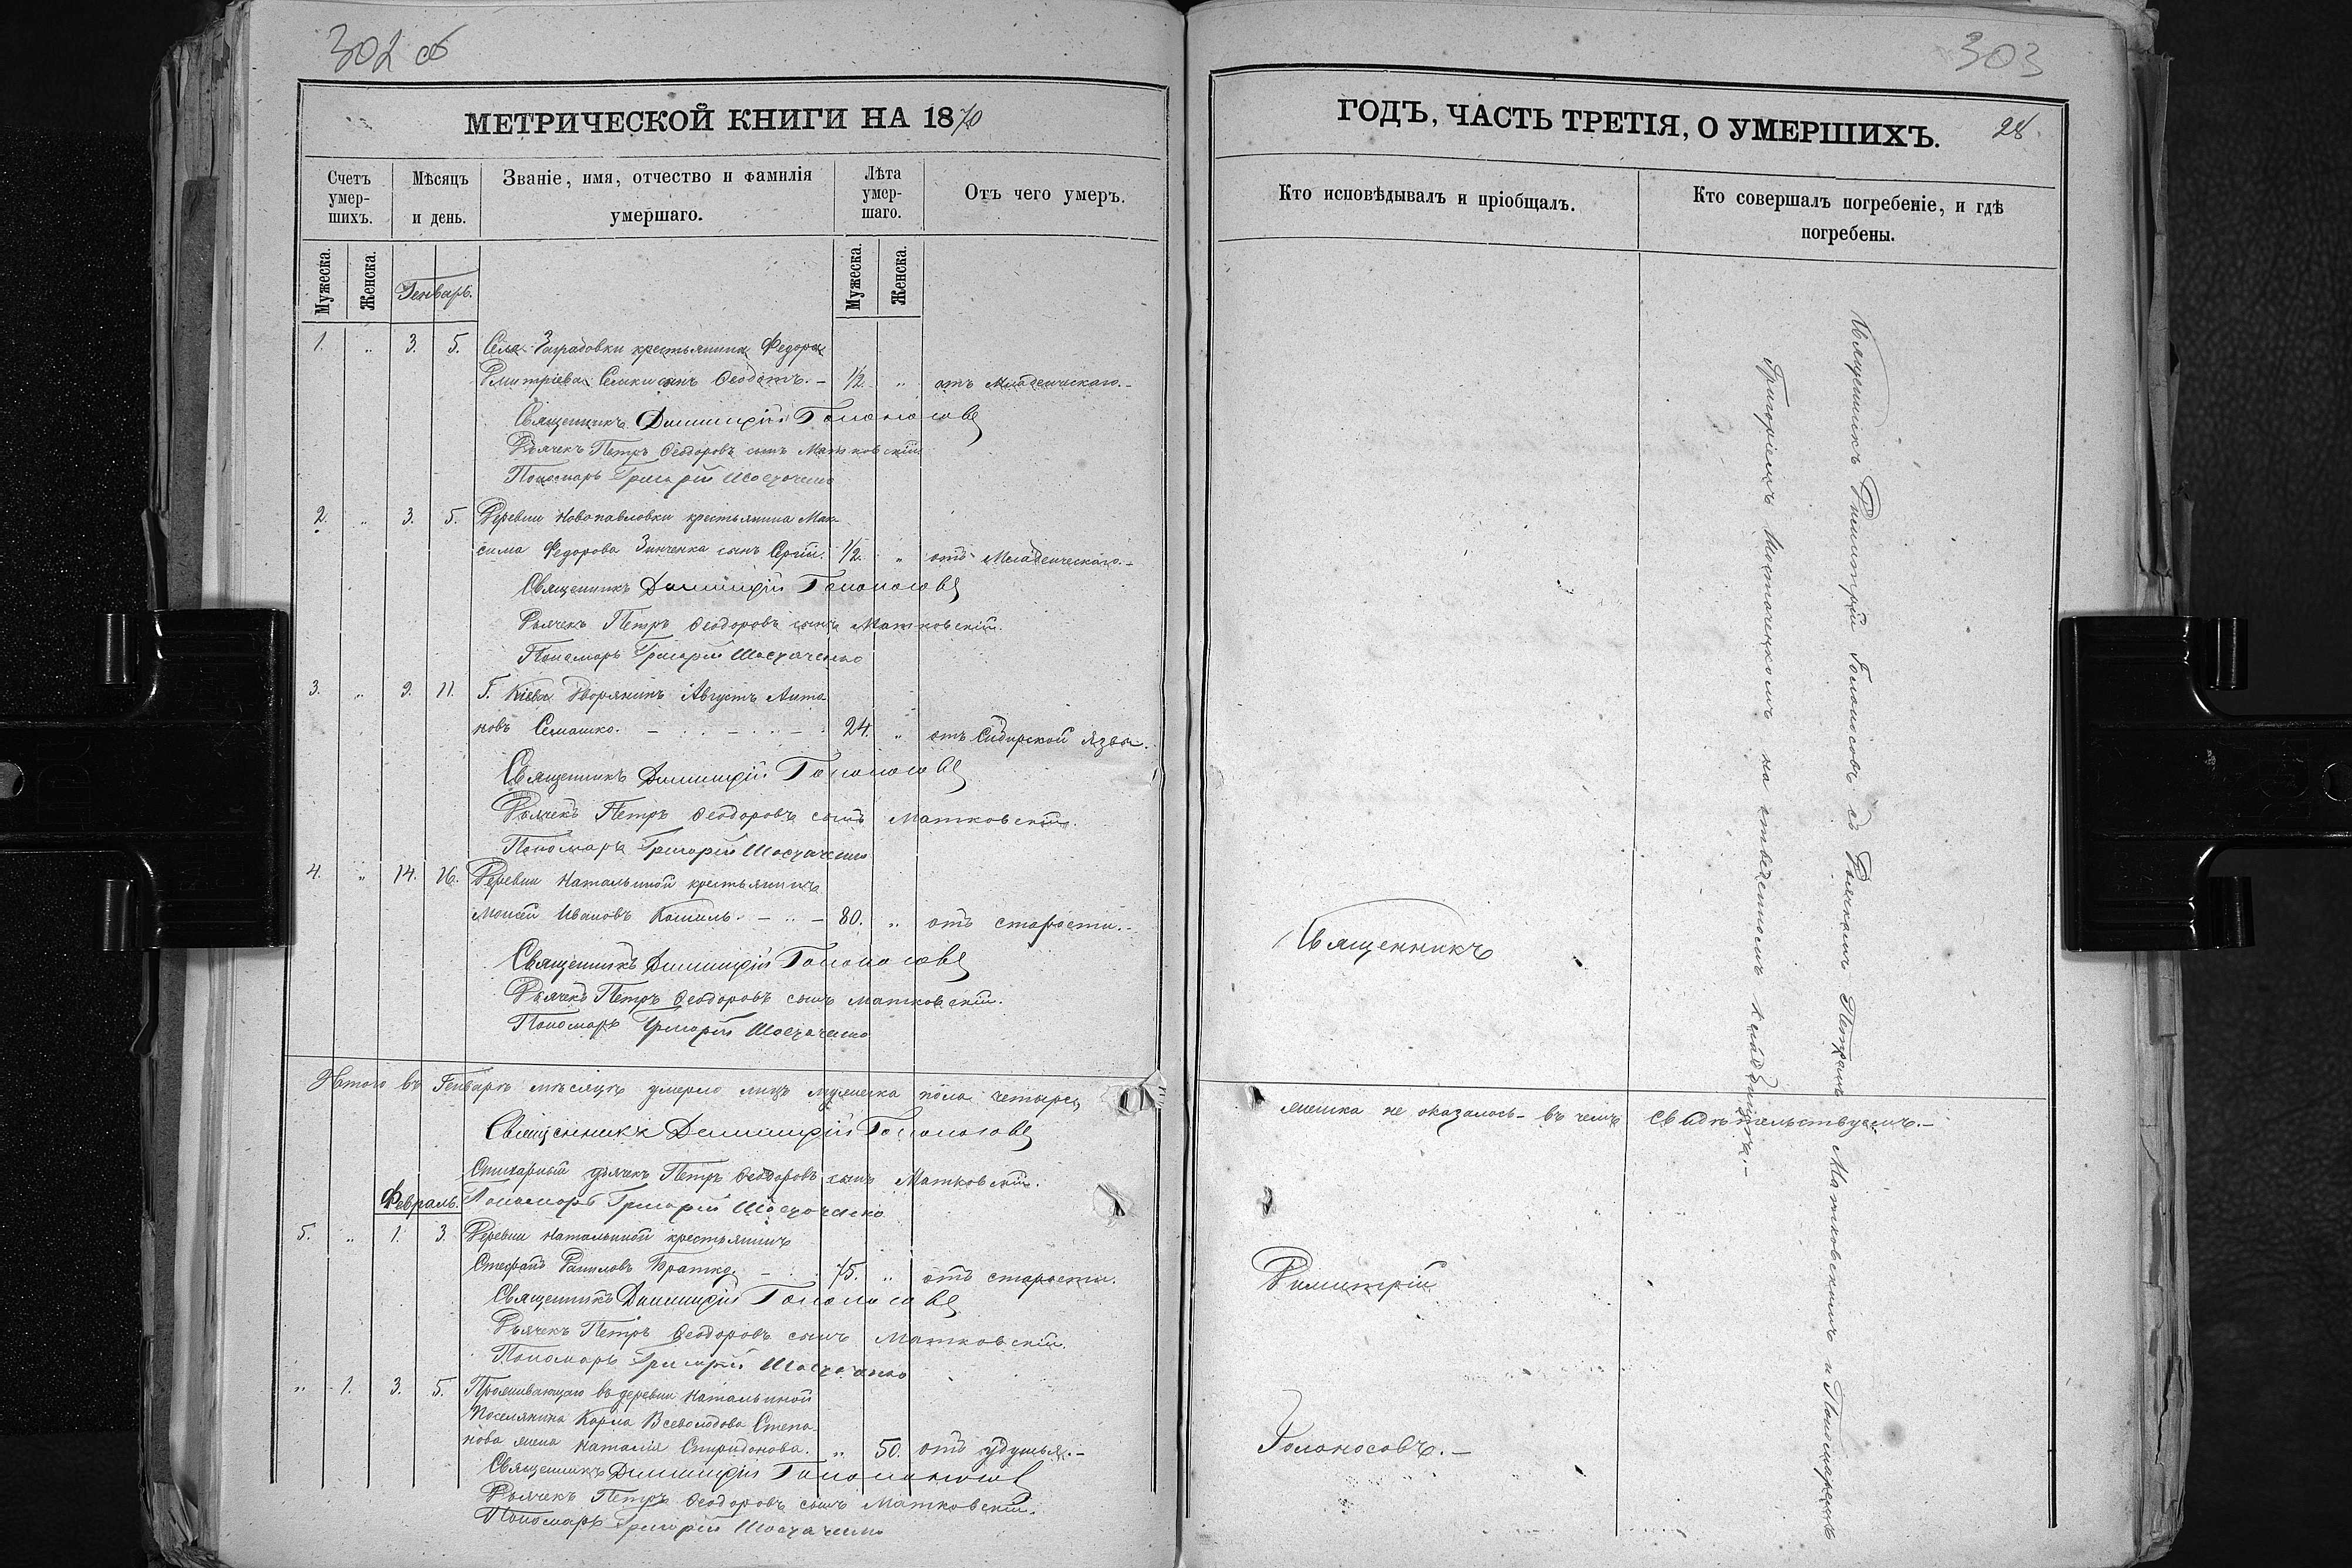 302 об
МЕТРИЧЕСКОЙ КНИГИ НА 1870
Счетъ умер-
шихъ.
Мѣсяцъ
и день.
Званіе, имя, отчество и фамилія
умершаго.
Лѣта
умер-
шаго.
Отъ чего умеръ.
Мужеска.
Женска.
Генварь.
Мужеска.
Женска.
1. " 3. 5. Села Заградовки крестьянина Федора
Дмитріева Семки сынъ Ѳеодотъ. - 1/2. " отъ Младенческаго. -
Священникъ Димитрій Голоносовъ
Дьячекъ Петръ Ѳеодоровъ сынъ Матковскій
Пономарь Григорій
2. " 3. 5. Деревни Новопавловки крестьянина Мак-
сима Федорова Зинченка сынъ Сергій. 1/2. " отъ Младенческаго. -
Священникъ Димитрій Голоносовъ
Дьячекъ Петръ Ѳеодоровъ сынъ Матковскій.
Пономарь Григорій
3. " 9. 11. Г. Кіева Дворянинъ Августъ Анто-
новъ Семашко. - 24. " отъ Сибирской язвы.
Священникъ Димитрій Голоносовъ
Дьячекъ Петръ Ѳеодоровъ сынъ Матковскій.
Пономарь Григорій
4. " 14. 16. Деревни Натальиной крестьянинъ
Моисей Ивановъ Кошиль. - 80. " отъ старости. -
Священникъ Димитрій Голоносовъ
Дьячекъ Петръ Ѳеодоровъ сынъ Матковскій.
Пономарь Григорій
Итого въ Генварѣ мѣсяцѣ умерло лицъ мужеска пола четыре,
Священникъ Димитрій Голоносовъ
Стихарный дьячекъ Петръ Ѳеодоровъ сынъ Матковскій.
Февраль. Пономарь Григорій
5. " 1. 3. Деревни Натальиной крестьянинъ
Стефанъ Даниловъ Братко. - 75. " отъ старости.
Священникъ Димитрій Голоносовъ
Дьячекъ Петръ Ѳеодоровъ сынъ Матковскій.
Пономарь Григорій
" 1. 3. 5. Проживающаго въ деревни Натальиной
Поселянина Карла Всеволодова Степа-
нова жена Наталія Спиридонова. " 50. отъ удушья. -
Священникъ Димитрій Голоносовъ
Дьячекъ Петръ Ѳеодоровъ сынъ Матковскій.
Пономарь Григорій
303
ГОДЪ, ЧАСТЬ ТРЕТІЯ, О УМЕРШИХЪ. 28.
Кто исповѣдывалъ и пріобщалъ.
Кто совершалъ погребеніе, и гдѣ
погребены.
Священникъ Димитрій Голоносовъ съ Дьячкомъ Петромъ Матковскимъ и Пономаремъ
Григоріемъ на отведенномъ кладбищѣ. -
Священникъ
женска не оказалось - въ чемъ свидѣтельствуемъ. -
Димитрій
Голоносовъ. -